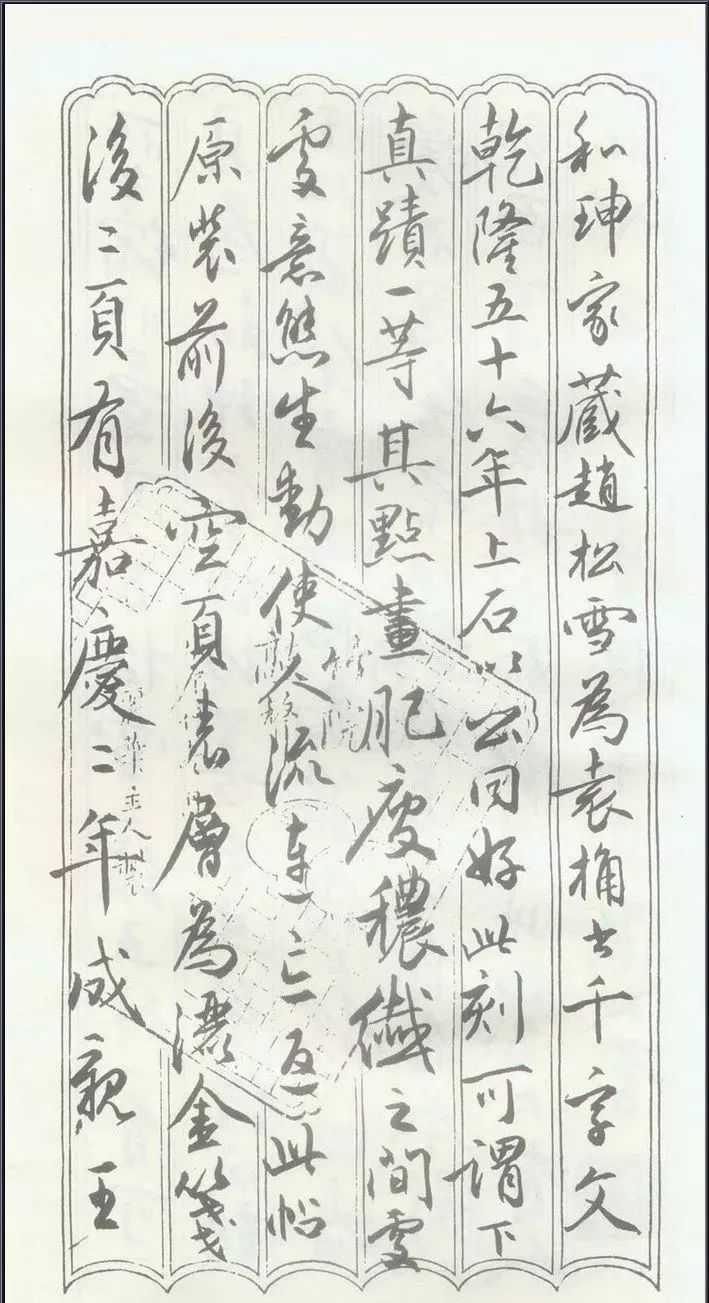 和珅家藏趙松雪為袁桷書千字文
乾隆五十六年上石以公同好此刻可謂下
真蹟一等其點畫肥瘦穠纖之間處
處意態生動使人流連忘返此帖
原裝前後空頁表層為灑金箋
後二頁有嘉慶二年成親王